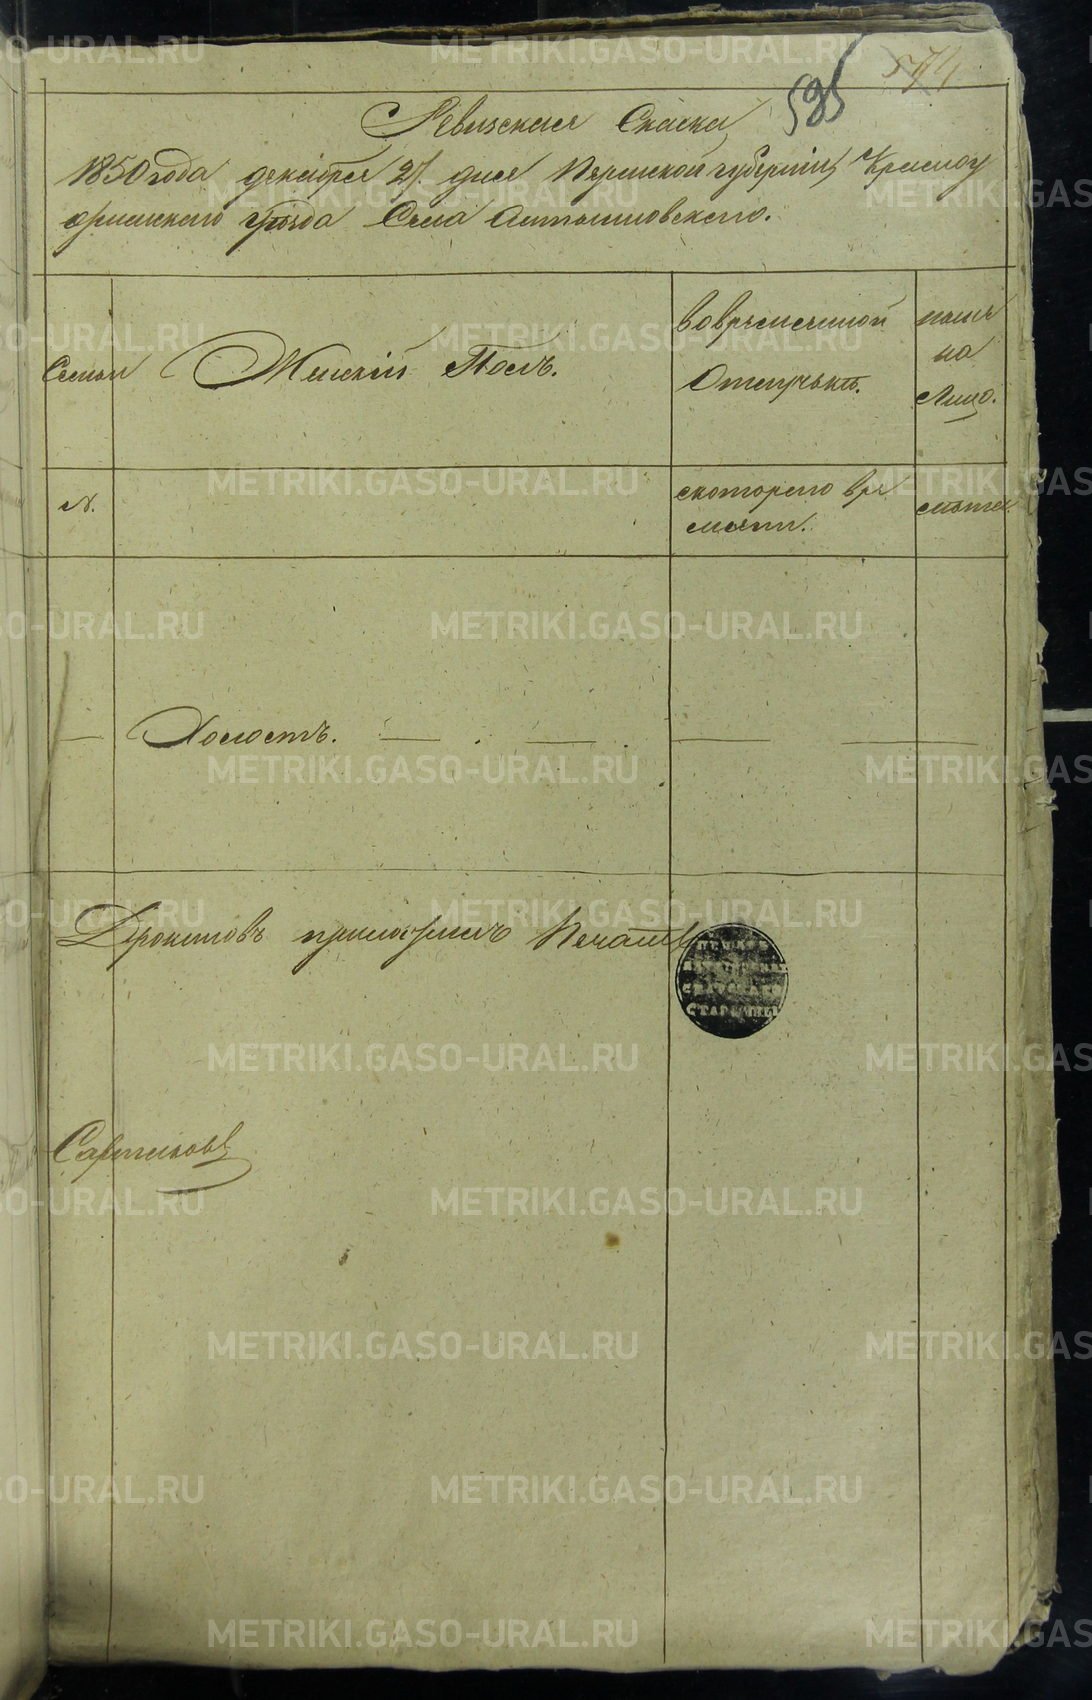 574
585
Ревизская Скаска
1850 года декабря 27. дня Пермской губернии Красноу
фимскаго уѣзда Села Алтыновскаго.
Семьи
Женскій Полъ.
вовременной
Отлучькѣ.
ныне
на
Лицо.
N.
скотораго вре
мяни.
лѣта.
Холостъ.
приложилъ Печать
ПЕЧАТЬ
СТАРШИНЫ
METRIKI.GASO-URAL.RU